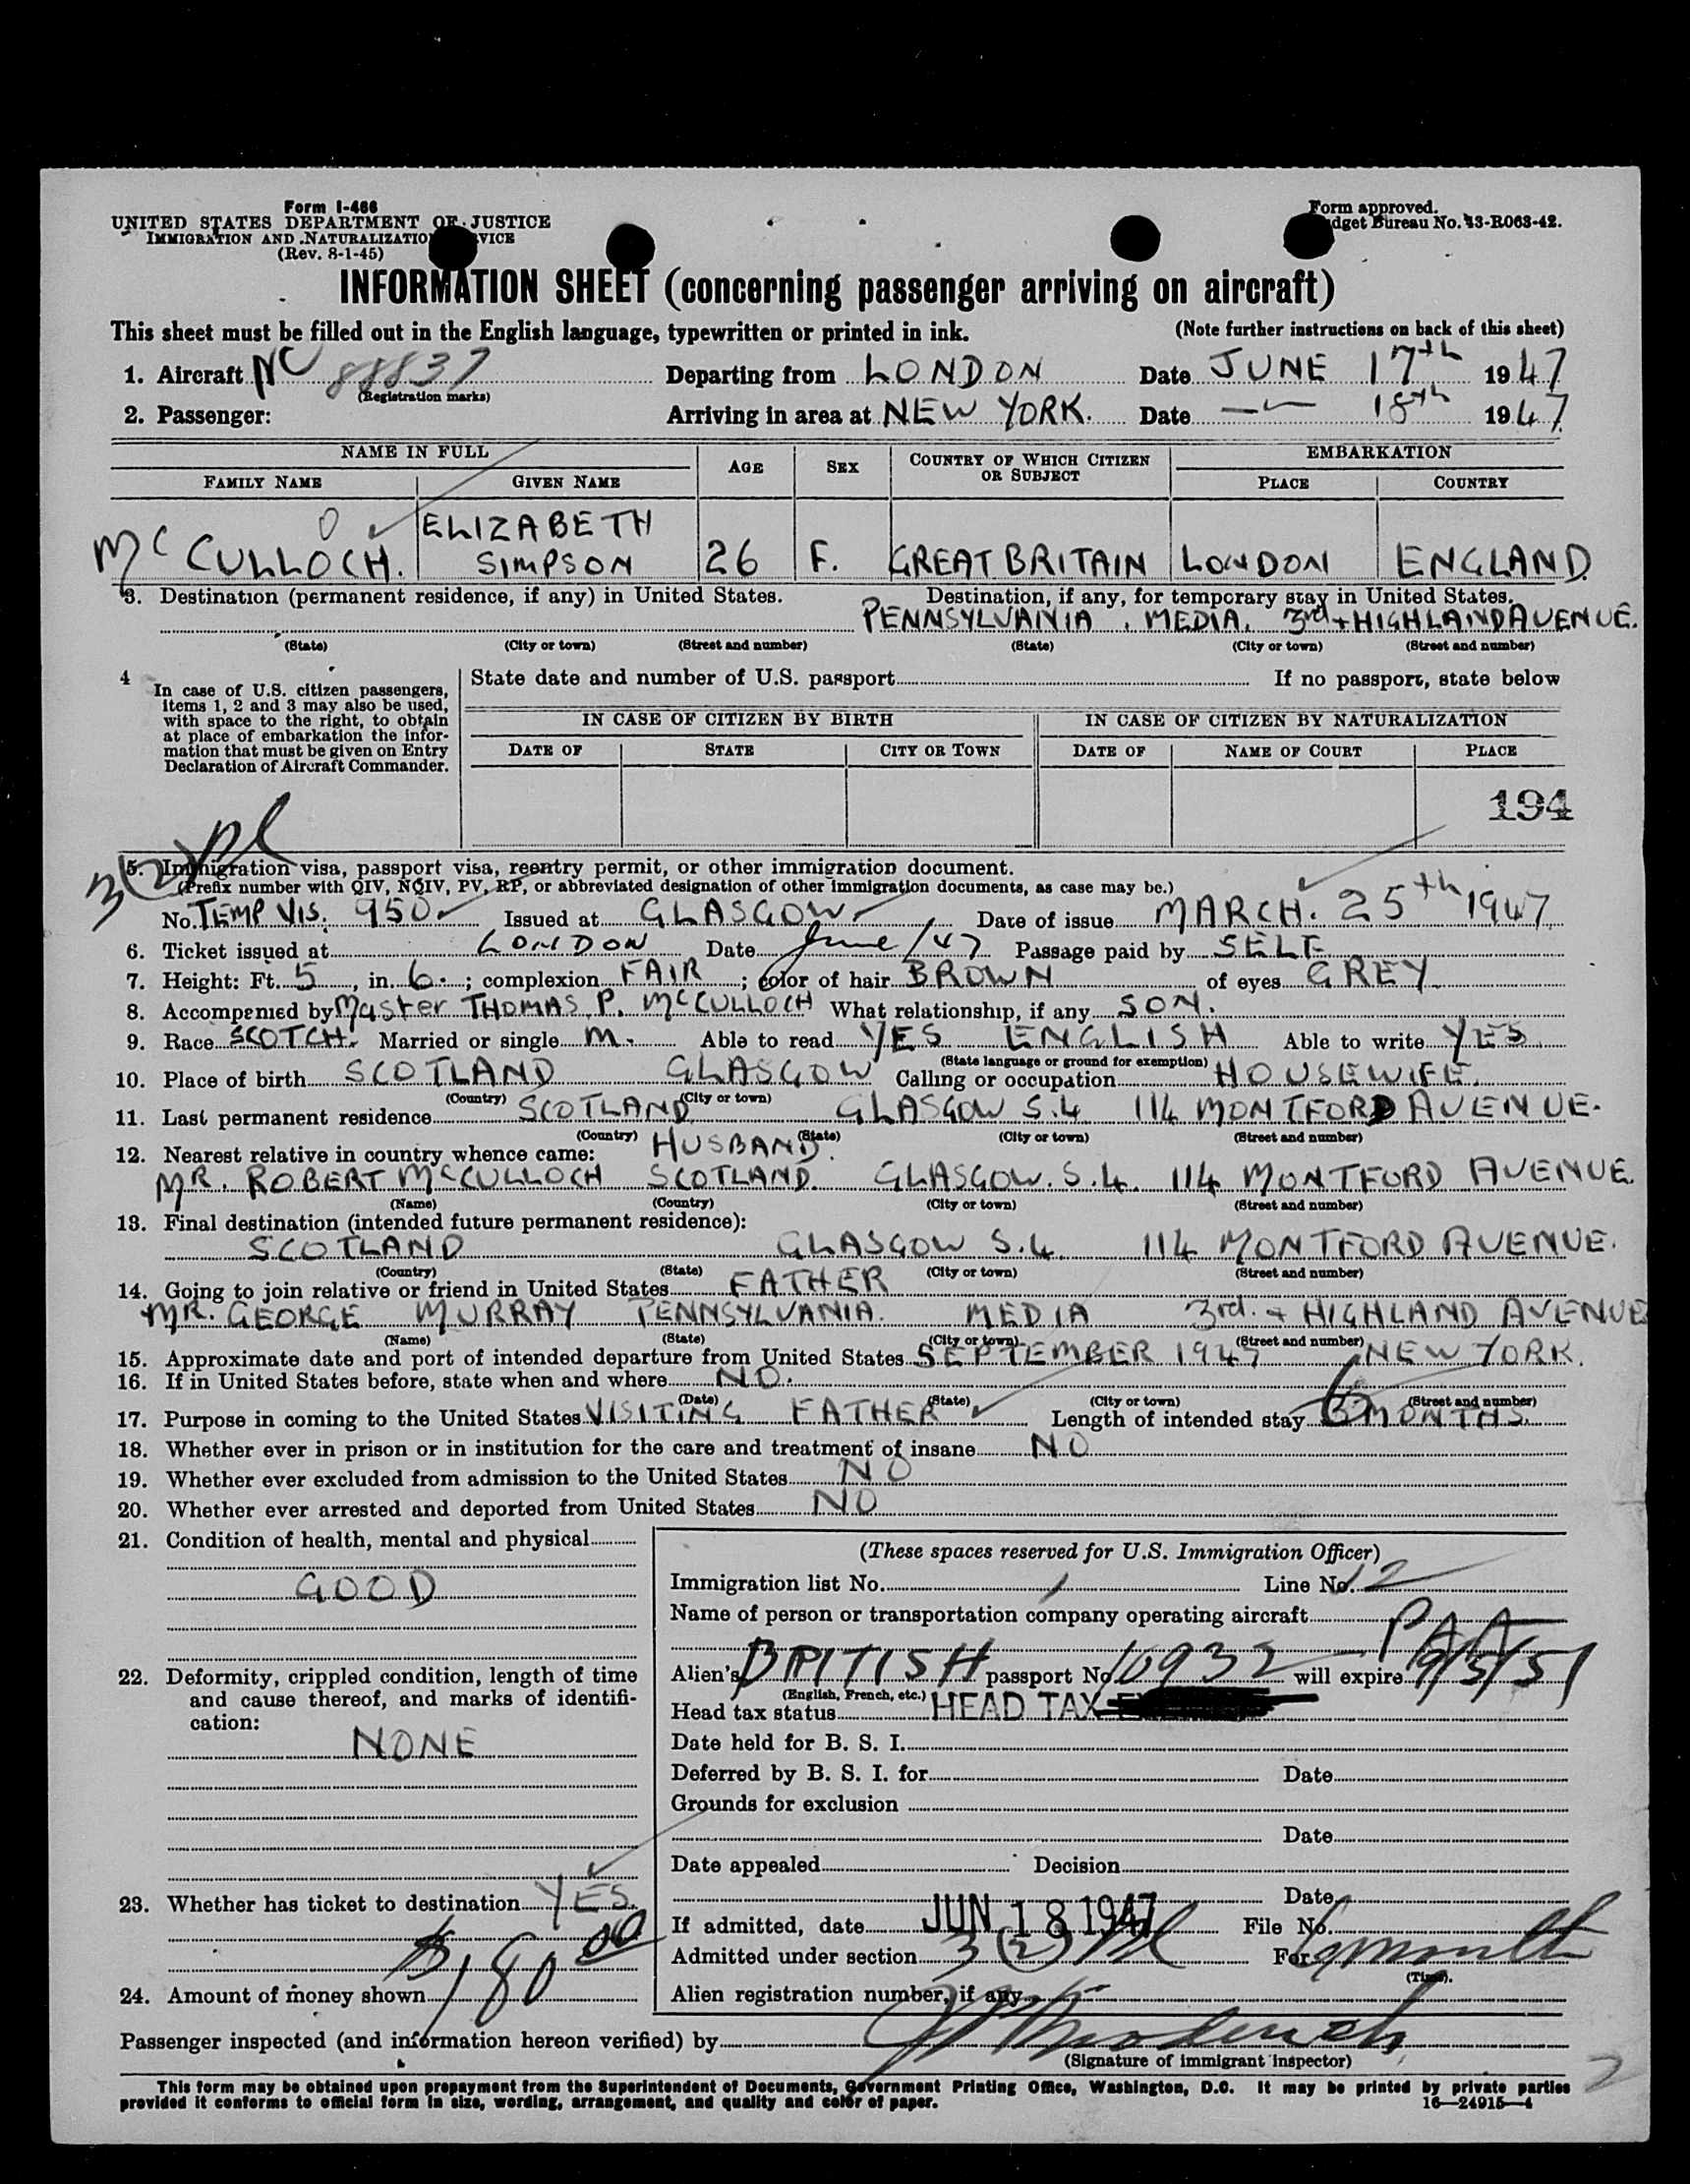 Form I-466
UNITED STATES DEPARTMENT OF JUSTICE
IMMIGRATION AND NATURALIZATIO VICE
(Rev. 8-1-45)
Form approved.
dget Bureau No. 43-R063-42.
INFORMATION SHEET (concerning passenger arriving on aircraft)
This sheet must be filled out in the English language, typewritten or printed in ink. (Note further instructions on back of this sheet)
1. Aircraft NC 88837 Departing from LONDON Date JUNE 17th 1947
(Registration marks)
2. Passenger: Arriving in area at NEW YORK. Date —〃— 18th 1947
NAME IN FULL AGE SEX COUNTRY OF WHICH CITIZEN OR SUBJECT EMBARKATION
FAMILY NAME GIVEN NAME PLACE COUNTRY
McCULLOCH. ELIZABETH SIMPSON 26 F. GREAT BRITAIN LONDON ENGLAND
3. Destination (permanent residence, if any) in United States. Destination, if any, for temporary stay in United States.
PENNSYLVANIA, MEDIA, 3rd + HIGHLAND AVENUE.
(State) (City or town) (Street and number) (State) (City or town) (Street and number)
4 In case of U.S. citizen passengers, items 1, 2 and 3 may also be used, with space to the right, to obtain at place of embarkation the information that must be given on Entry Declaration of Aircraft Commander.
State date and number of U.S. passport If no passport, state below
IN CASE OF CITIZEN BY BIRTH IN CASE OF CITIZEN BY NATURALIZATION
DATE OF STATE CITY OR TOWN DATE OF NAME OF COURT PLACE
194
3(2)
5. Immigration visa, passport visa, reentry permit, or other immigration document.
(Prefix number with QIV, NQIV, PV, RP, or abbreviated designation of other immigration documents, as case may be.)
No. TEMP VIS. 950 Issued at GLASGOW Date of issue MARCH. 25th 1947
6. Ticket issued at LONDON Date June/47 Passage paid by SELF
7. Height: Ft. 5, in. 6.; complexion FAIR; color of hair BROWN of eyes GREY
8. Accompanied by Master THOMAS P. McCULLOCH What relationship, if any SON.
9. Race SCOTCH. Married or single M. Able to read YES ENGLISH Able to write YES
(State language or ground for exemption)
10. Place of birth SCOTLAND GLASGOW Calling or occupation HOUSEWIFE.
(Country) (City or town)
11. Last permanent residence SCOTLAND GLASGOW S.4 114 MONTFORD AVENUE.
(Country) (State) (City or town) (Street and number)
12. Nearest relative in country whence came: HUSBAND.
MR. ROBERT McCULLOCH SCOTLAND. GLASGOW. S.4. 114 MONTFORD AVENUE.
(Name) (Country) (City or town) (Street and number)
13. Final destination (intended future permanent residence):
SCOTLAND GLASGOW S.4. 114 MONTFORD AVENUE.
(Country) (State) (City or town) (Street and number)
14. Going to join relative or friend in United States FATHER
MR. GEORGE MURRAY PENNSYLVANIA. MEDIA 3rd. + HIGHLAND AVENUE
(Name) (State) (City or town) (Street and number)
15. Approximate date and port of intended departure from United States SEPTEMBER 1947 NEW YORK.
16. If in United States before, state when and where NO.
(Date) (State) (City or town) (Street and number)
17. Purpose in coming to the United States VISITING FATHER Length of intended stay 6 MONTHS.
18. Whether ever in prison or in institution for the care and treatment of insane NO
19. Whether ever excluded from admission to the United States NO
20. Whether ever arrested and deported from United States NO
21. Condition of health, mental and physical
GOOD
22. Deformity, crippled condition, length of time and cause thereof, and marks of identification:
NONE
23. Whether has ticket to destination YES.
$180 00
24. Amount of money shown
(These spaces reserved for U.S. Immigration Officer)
Immigration list No. 1 Line No. 12
Name of person or transportation company operating aircraft
PAA
Alien's BRITISH passport No. 10932 will expire 9/5/51
(English, French, etc.)
Head tax status HEAD TAX
Date held for B. S. I.
Deferred by B. S. I. for Date
Grounds for exclusion
Date
Date appealed Decision
Date
If admitted, date JUN 18 1947 File No.
Admitted under section 3(2) For 6 month
(Time).
Alien registration number, if any
Passenger inspected (and information hereon verified) by
(Signature of immigrant inspector)
2
This form may be obtained upon prepayment from the Superintendent of Documents, Government Printing Office, Washington, D.C. It may be printed by private parties
provided it conforms to official form in size, wording, arrangement, and quality and color of paper. 16—24915-4